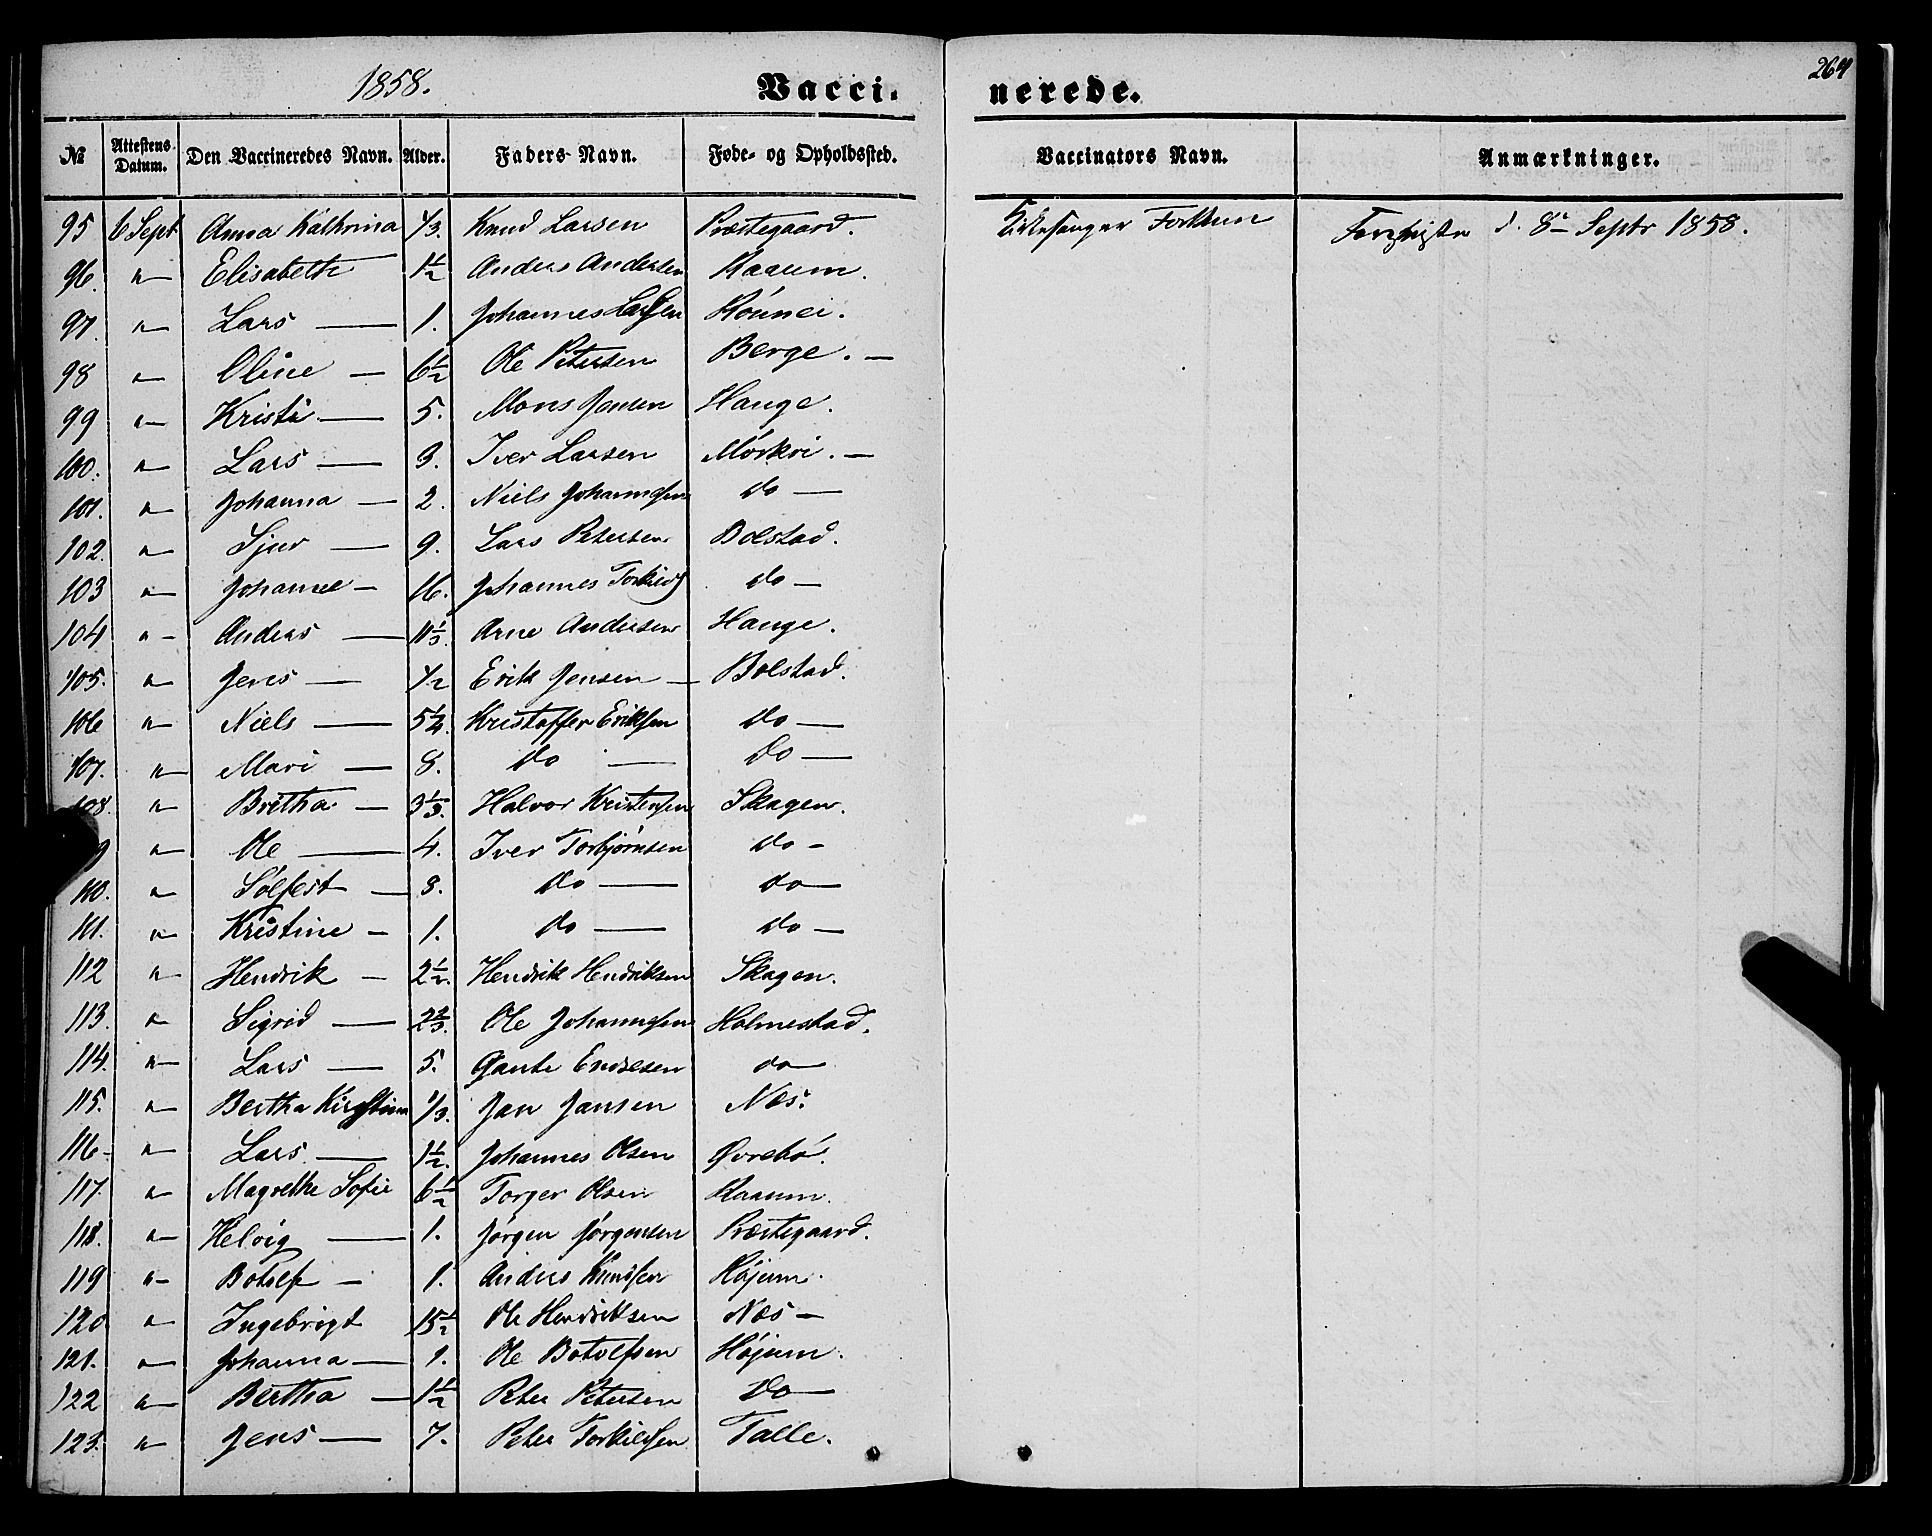 1858.
Vacci-
nerede.
264
№ Attestens Datum. Den Vaccineredes Navn. Alder. Faders Navn. Føde- og Opholdssted. Vaccinators Navn. Anmærkninger.
95 6 Sept Anna Kathrina 1/3. Knud Larsen Præstegaard. Kirkesanger Forthun d. 8de Septr 1858.
96. " Elisabeth 1 1/2 Anders Andersen Kaaum.
97. " Lars — 1. Johannes Larssen Rónnei.
98 " Oline — 6 1/2 Ole Petersen Berge. —
99 " Kristi — 5. Mons Jensen Hauge.
100. " Lars — 9. Iver Larsen Mórkri. —
101. " Johanna — 2. Niels Johannssen do —
102. " Sjur — 9. Lars Petersen Bolstad.
103 " Johanne — 16. Johannes Torkilds do —
104 " Anders — 11 1/3. Arne Andersen Hauge.
105. " Jens — 1/2 Erik Jensen — Bolstad.
106 " Niels — 5 1/4. Kristoffer Erikssen do —
107. " Mari — 8. do — do —
108. " Britha — 3 1/3. Halvor Kristenssen Skagen.
9 " Ole — 4. Iver Torbjørnsen do —
110. " Sólfest — 3. do — do —
111. " Kristine — 1. do — do —
112 " Hendrik — 2 1/2. Hendrik Hendriksen Skagen.
113. " Sigrid — 2 2/3. Ole Johannssen Holmestad.
114. " Lars — 5. Gaute Endresen do —
115. " Bertha Kirstina 1/3. Jan Jansen Næs.
116. " Lars — 1 1/2. Johannes Olsen Øvrebó.
117. " Magrethe Sofie 6 1/2 Torger Olsen Kaaum.
118. " Helvig — 1. Jórgen Jórgensen Præstegaard.
119 " Botolf — 1. Anders Knudsen Hójum.
120 " Ingebrigt 15 1/2 Ole Hendriksen Næs —
121. " Johanna — 1. Ole Botolfsen Hójum.
122 " Bertha — 1 1/2 Peter Petersen Do —
123. " Jens — 7. Peter Torkildsen Talle.